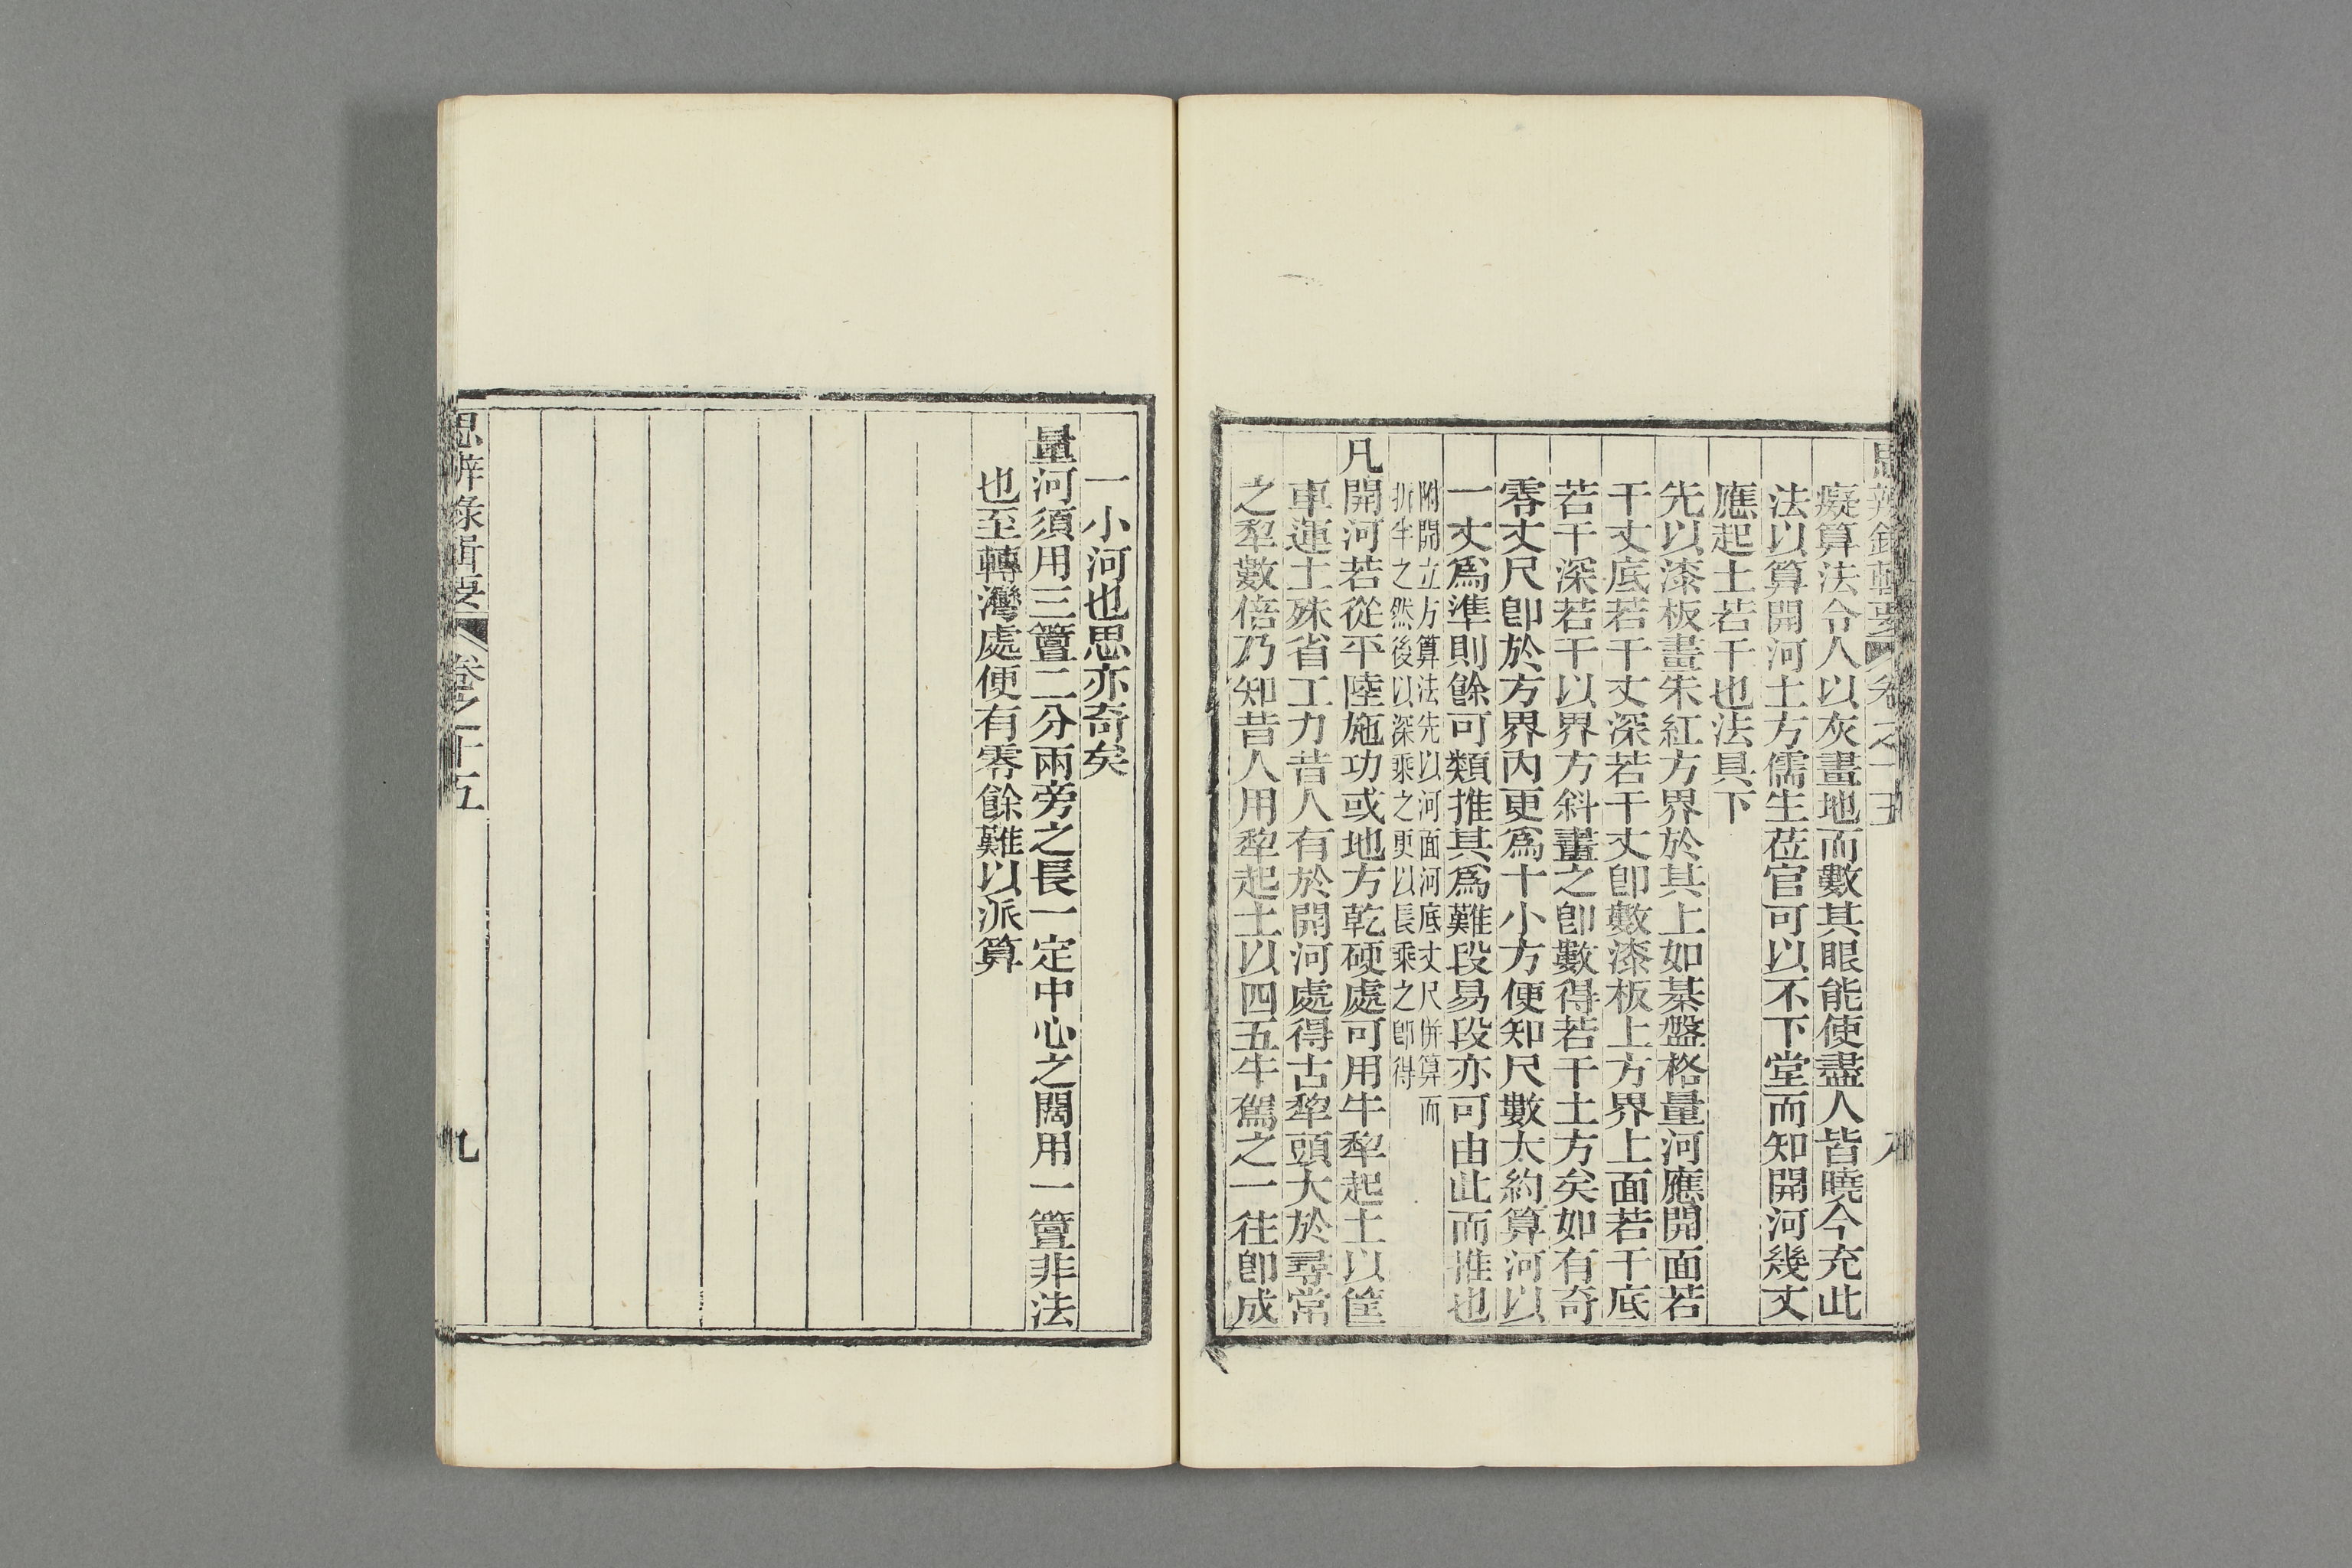 思辨錄輯要 卷之十五 八
癡算法令人以灰畫地而數其眼能使盡人皆曉今充此
法以算開河土方儒生莅官可以不下堂而知開河幾丈
應起土若干也法具下
先以漆板畫朱紅方界於其上如棊盤格量河應開面若
干丈底若干丈深若干丈卽數漆板上方界上面若干底
若干深若干以界方斜畫之卽數得若干土方矣如有奇
零丈尺卽於方界內更爲十小方便知尺數大約算河以
一丈爲準則餘可類推其爲難段易段亦可由此而推也
附開立方算法先以河面河底丈尺併算而
折半之然後以深乘之更以長乘之卽得
凡開河若從平陸施功或地方乾硬處可用牛犂起土以筐
車運土殊省工力昔人有於開河處得古犂頭大於尋常
之犂數倍乃知昔人用犂起土以四五牛駕之一往卽成
一小河也思亦奇矣
量河須用三簹二分兩旁之長一定中心之闊用一簹非法
也至轉灣處便有零餘難以派算
思辨錄輯要 卷之十五 九